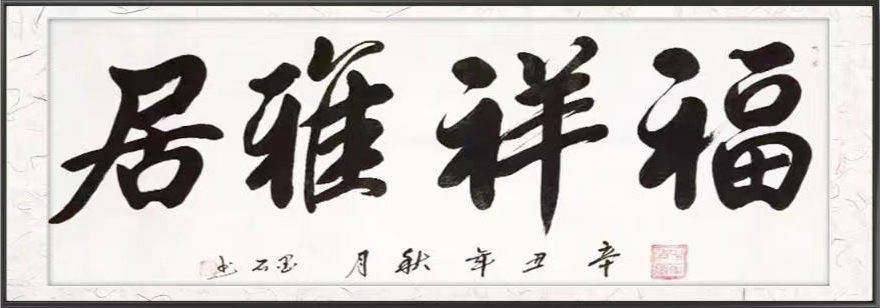 福祥雅居
辛丑年秋月 墨石书